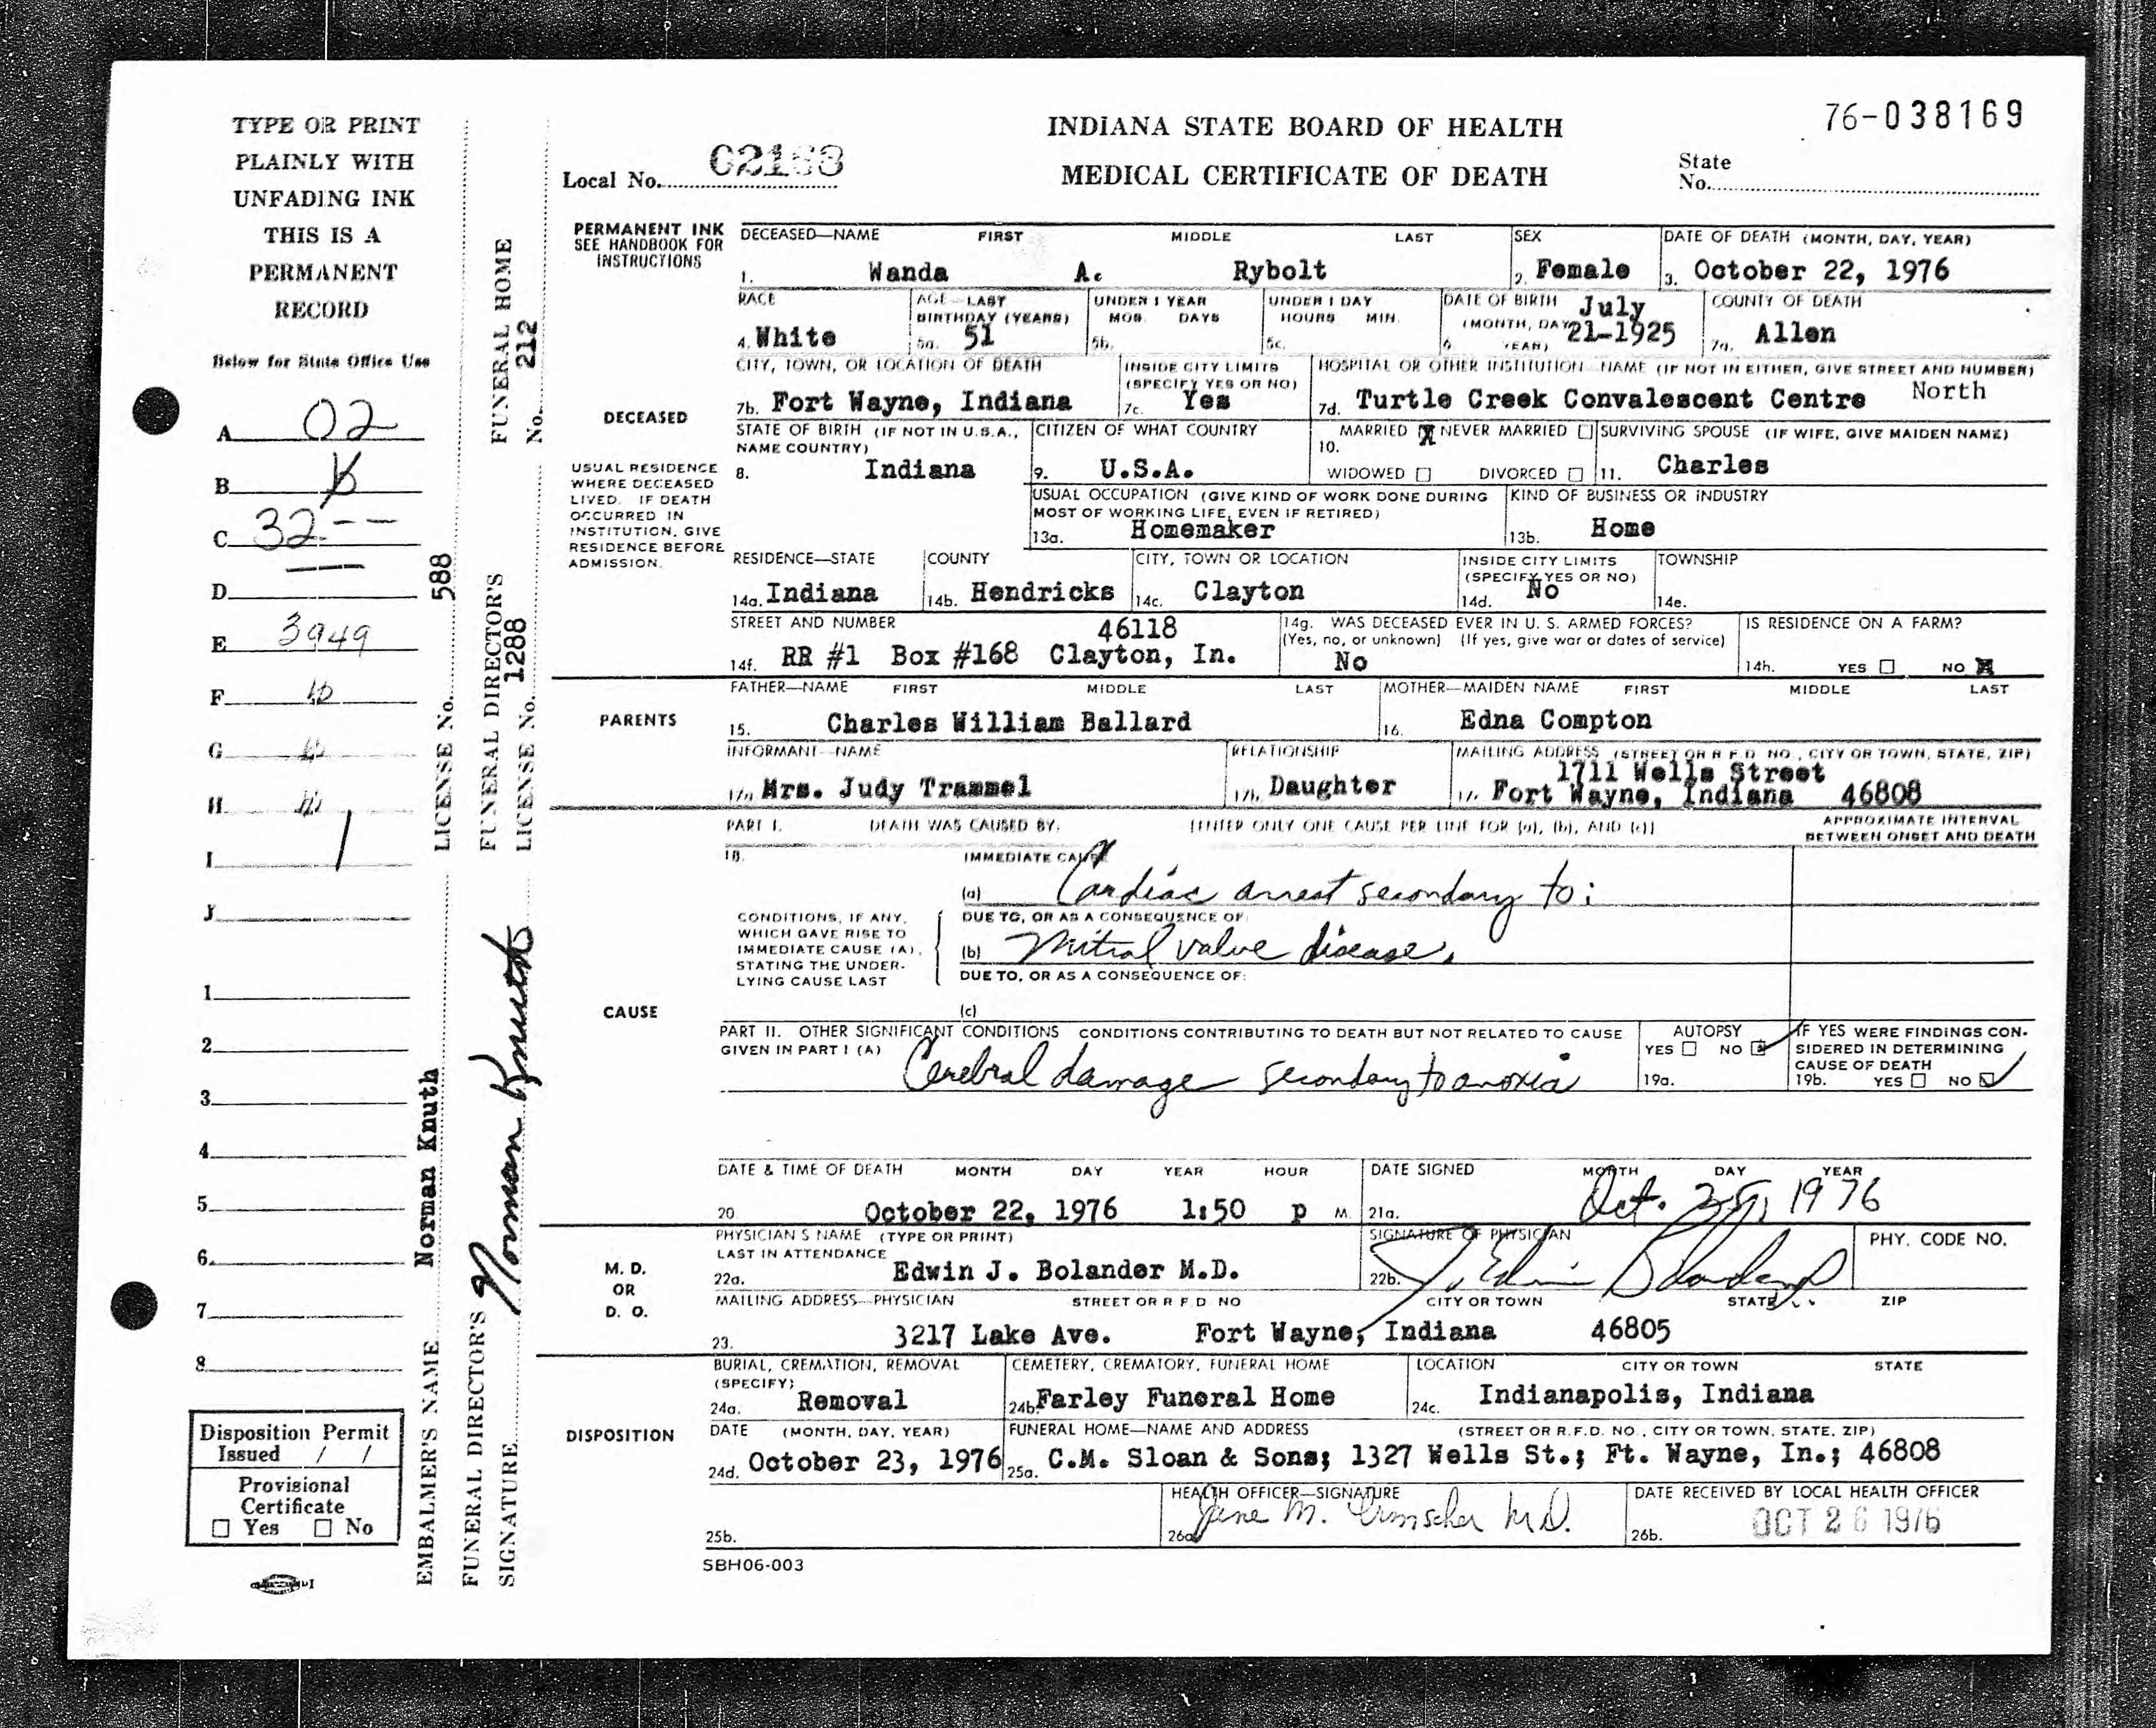 TYPE OR PRINT
PLAINLY WITH
UNFADING INK
THIS IS A
PERMANENT
RECORD
Below for State Office Use
A 02
B
C 32--
D
E 3949
F
G
H
I
J
1
2
3
4
5
6.
7
8
Disposition Permit
Issued / /
Provisional
Certificate
☐ Yes ☐ No
EMBALMER'S NAME Norman Knuth LICENSE No. 588
FUNERAL DIRECTOR'S SIGNATURE Norman Knuth
FUNERAL DIRECTOR'S LICENSE No. 1288
FUNERAL HOME No. 212
INDIANA STATE BOARD OF HEALTH
MEDICAL CERTIFICATE OF DEATH
76-038169
Local No.
State
No.
PERMANENT INK
SEE HANDBOOK FOR
INSTRUCTIONS
DECEASED—NAME FIRST MIDDLE LAST SEX DATE OF DEATH (MONTH, DAY, YEAR)
1. Wanda A. Rybolt 2. Female 3. October 22, 1976
RACE AGE—LAST BIRTHDAY (YEARS) UNDER 1 YEAR MOS. DAYS UNDER 1 DAY HOURS MIN. DATE OF BIRTH (MONTH, DAY YEAR) COUNTY OF DEATH
4. White 5a. 51 5b. 5c. 6. July 21-1925 7a. Allen
CITY, TOWN, OR LOCATION OF DEATH INSIDE CITY LIMITS (SPECIFY YES OR NO) HOSPITAL OR OTHER INSTITUTION—NAME (IF NOT IN EITHER, GIVE STREET AND NUMBER)
7b. Fort Wayne, Indiana 7c. Yes 7d. Turtle Creek Convalescent Centre North
DECEASED
USUAL RESIDENCE
WHERE DECEASED
LIVED. IF DEATH
OCCURRED IN
INSTITUTION, GIVE
RESIDENCE BEFORE
ADMISSION.
STATE OF BIRTH (IF NOT IN U.S.A., NAME COUNTRY) CITIZEN OF WHAT COUNTRY 10. MARRIED ☒ NEVER MARRIED ☐ SURVIVING SPOUSE (IF WIFE, GIVE MAIDEN NAME)
8. Indiana 9. U.S.A. WIDOWED ☐ DIVORCED ☐ 11. Charles
USUAL OCCUPATION (GIVE KIND OF WORK DONE DURING MOST OF WORKING LIFE, EVEN IF RETIRED) KIND OF BUSINESS OR INDUSTRY
13a. Homemaker 13b. Home
RESIDENCE—STATE COUNTY CITY, TOWN OR LOCATION INSIDE CITY LIMITS (SPECIFY YES OR NO) TOWNSHIP
14a. Indiana 14b. Hendricks 14c. Clayton 14d. No 14e.
STREET AND NUMBER 46118 14g. WAS DECEASED EVER IN U. S. ARMED FORCES? IS RESIDENCE ON A FARM?
(Yes, no, or unknown) (If yes, give war or dates of service)
14f. RR #1 Box #168 Clayton, In. No 14h. YES ☐ NO ☒
PARENTS
FATHER—NAME FIRST MIDDLE LAST MOTHER—MAIDEN NAME FIRST MIDDLE LAST
15. Charles William Ballard 16. Edna Compton
INFORMANT—NAME RELATIONSHIP MAILING ADDRESS (STREET OR R.F.D. NO., CITY OR TOWN, STATE, ZIP)
1711 Wells Street
17a. Mrs. Judy Trammel 17b. Daughter 17c. Fort Wayne, Indiana 46808
PART I. DEATH WAS CAUSED BY: [ENTER ONLY ONE CAUSE PER LINE FOR (a), (b), AND (c)] APPROXIMATE INTERVAL BETWEEN ONSET AND DEATH
18. IMMEDIATE CAUSE
(a) Cardiac arrest secondary to:
CONDITIONS, IF ANY,
WHICH GAVE RISE TO
IMMEDIATE CAUSE (A),
STATING THE UNDER-
LYING CAUSE LAST
DUE TO, OR AS A CONSEQUENCE OF:
(b) Mitral valve disease.
DUE TO, OR AS A CONSEQUENCE OF:
(c)
CAUSE
PART II. OTHER SIGNIFICANT CONDITIONS CONDITIONS CONTRIBUTING TO DEATH BUT NOT RELATED TO CAUSE GIVEN IN PART I (A)
Cerebral damage secondary to anoxia
AUTOPSY
YES ☐ NO ☑
19a.
IF YES WERE FINDINGS CON-
SIDERED IN DETERMINING
CAUSE OF DEATH
19b. YES ☐ NO ☑
DATE & TIME OF DEATH MONTH DAY YEAR HOUR DATE SIGNED MONTH DAY YEAR
20. October 22, 1976 1:50 p M. 21a. Oct. 25, 1976
M. D.
OR
D. O.
PHYSICIAN'S NAME (TYPE OR PRINT) LAST IN ATTENDANCE SIGNATURE OF PHYSICIAN PHY. CODE NO.
22a. Edwin J. Bolander M.D. 22b.
MAILING ADDRESS—PHYSICIAN STREET OR R.F.D NO CITY OR TOWN STATE ZIP
23. 3217 Lake Ave. Fort Wayne, Indiana 46805
DISPOSITION
BURIAL, CREMATION, REMOVAL (SPECIFY) CEMETERY, CREMATORY, FUNERAL HOME LOCATION CITY OR TOWN STATE
24a. Removal 24b. Farley Funeral Home 24c. Indianapolis, Indiana
DATE (MONTH, DAY, YEAR) FUNERAL HOME—NAME AND ADDRESS (STREET OR R.F.D. NO., CITY OR TOWN, STATE, ZIP)
24d. October 23, 1976 25a. C.M. Sloan & Sons; 1327 Wells St.; Ft. Wayne, In.; 46808
HEALTH OFFICER—SIGNATURE DATE RECEIVED BY LOCAL HEALTH OFFICER
25b. 26a. Jane M. Irmscher M.D. 26b. OCT 26 1976
SBH06-003